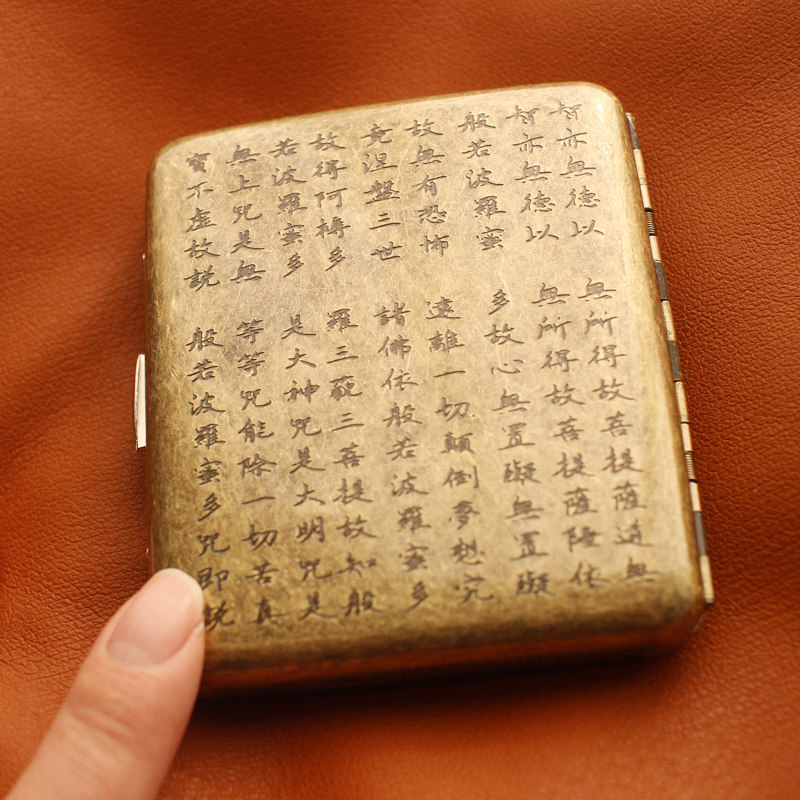 智亦無德以 無所得故菩提薩
智亦無德以 無所得故菩提薩依
般若波羅蜜 多故心無罣礙無罣礙
故無有恐怖 遠離一切顛倒夢想究
竟涅盤三世 諸佛依般若波羅蜜多
故得阿耨多 羅三藐三菩提故知般
若波羅蜜多 是大神咒是大明咒是
無上咒是無 等等咒能除一切苦真
實不虛故説 般若波羅蜜多咒即説